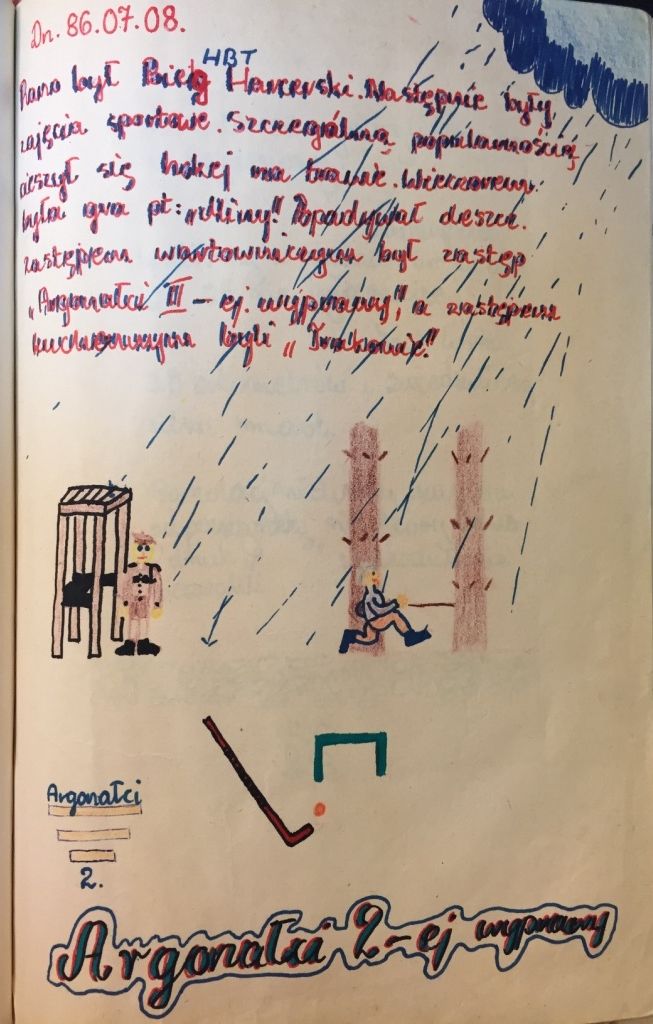 Dn. 86.07.08.
HBT
Rano był Bieg Harcerski. Następnie były
zajęcia sportowe. Szczególną popularnością
cieszył się hokej na trawie. Wieczorem
była gra pt: „Miny!" Popadywał deszcz.
zastępem wartowniczym był zastęp
„Argonałci III - ej. wyprawy", a zastępem
kuchennym byli „Trakowie!"
Argonałci
2.
Argonałci 2-ej wyprawy